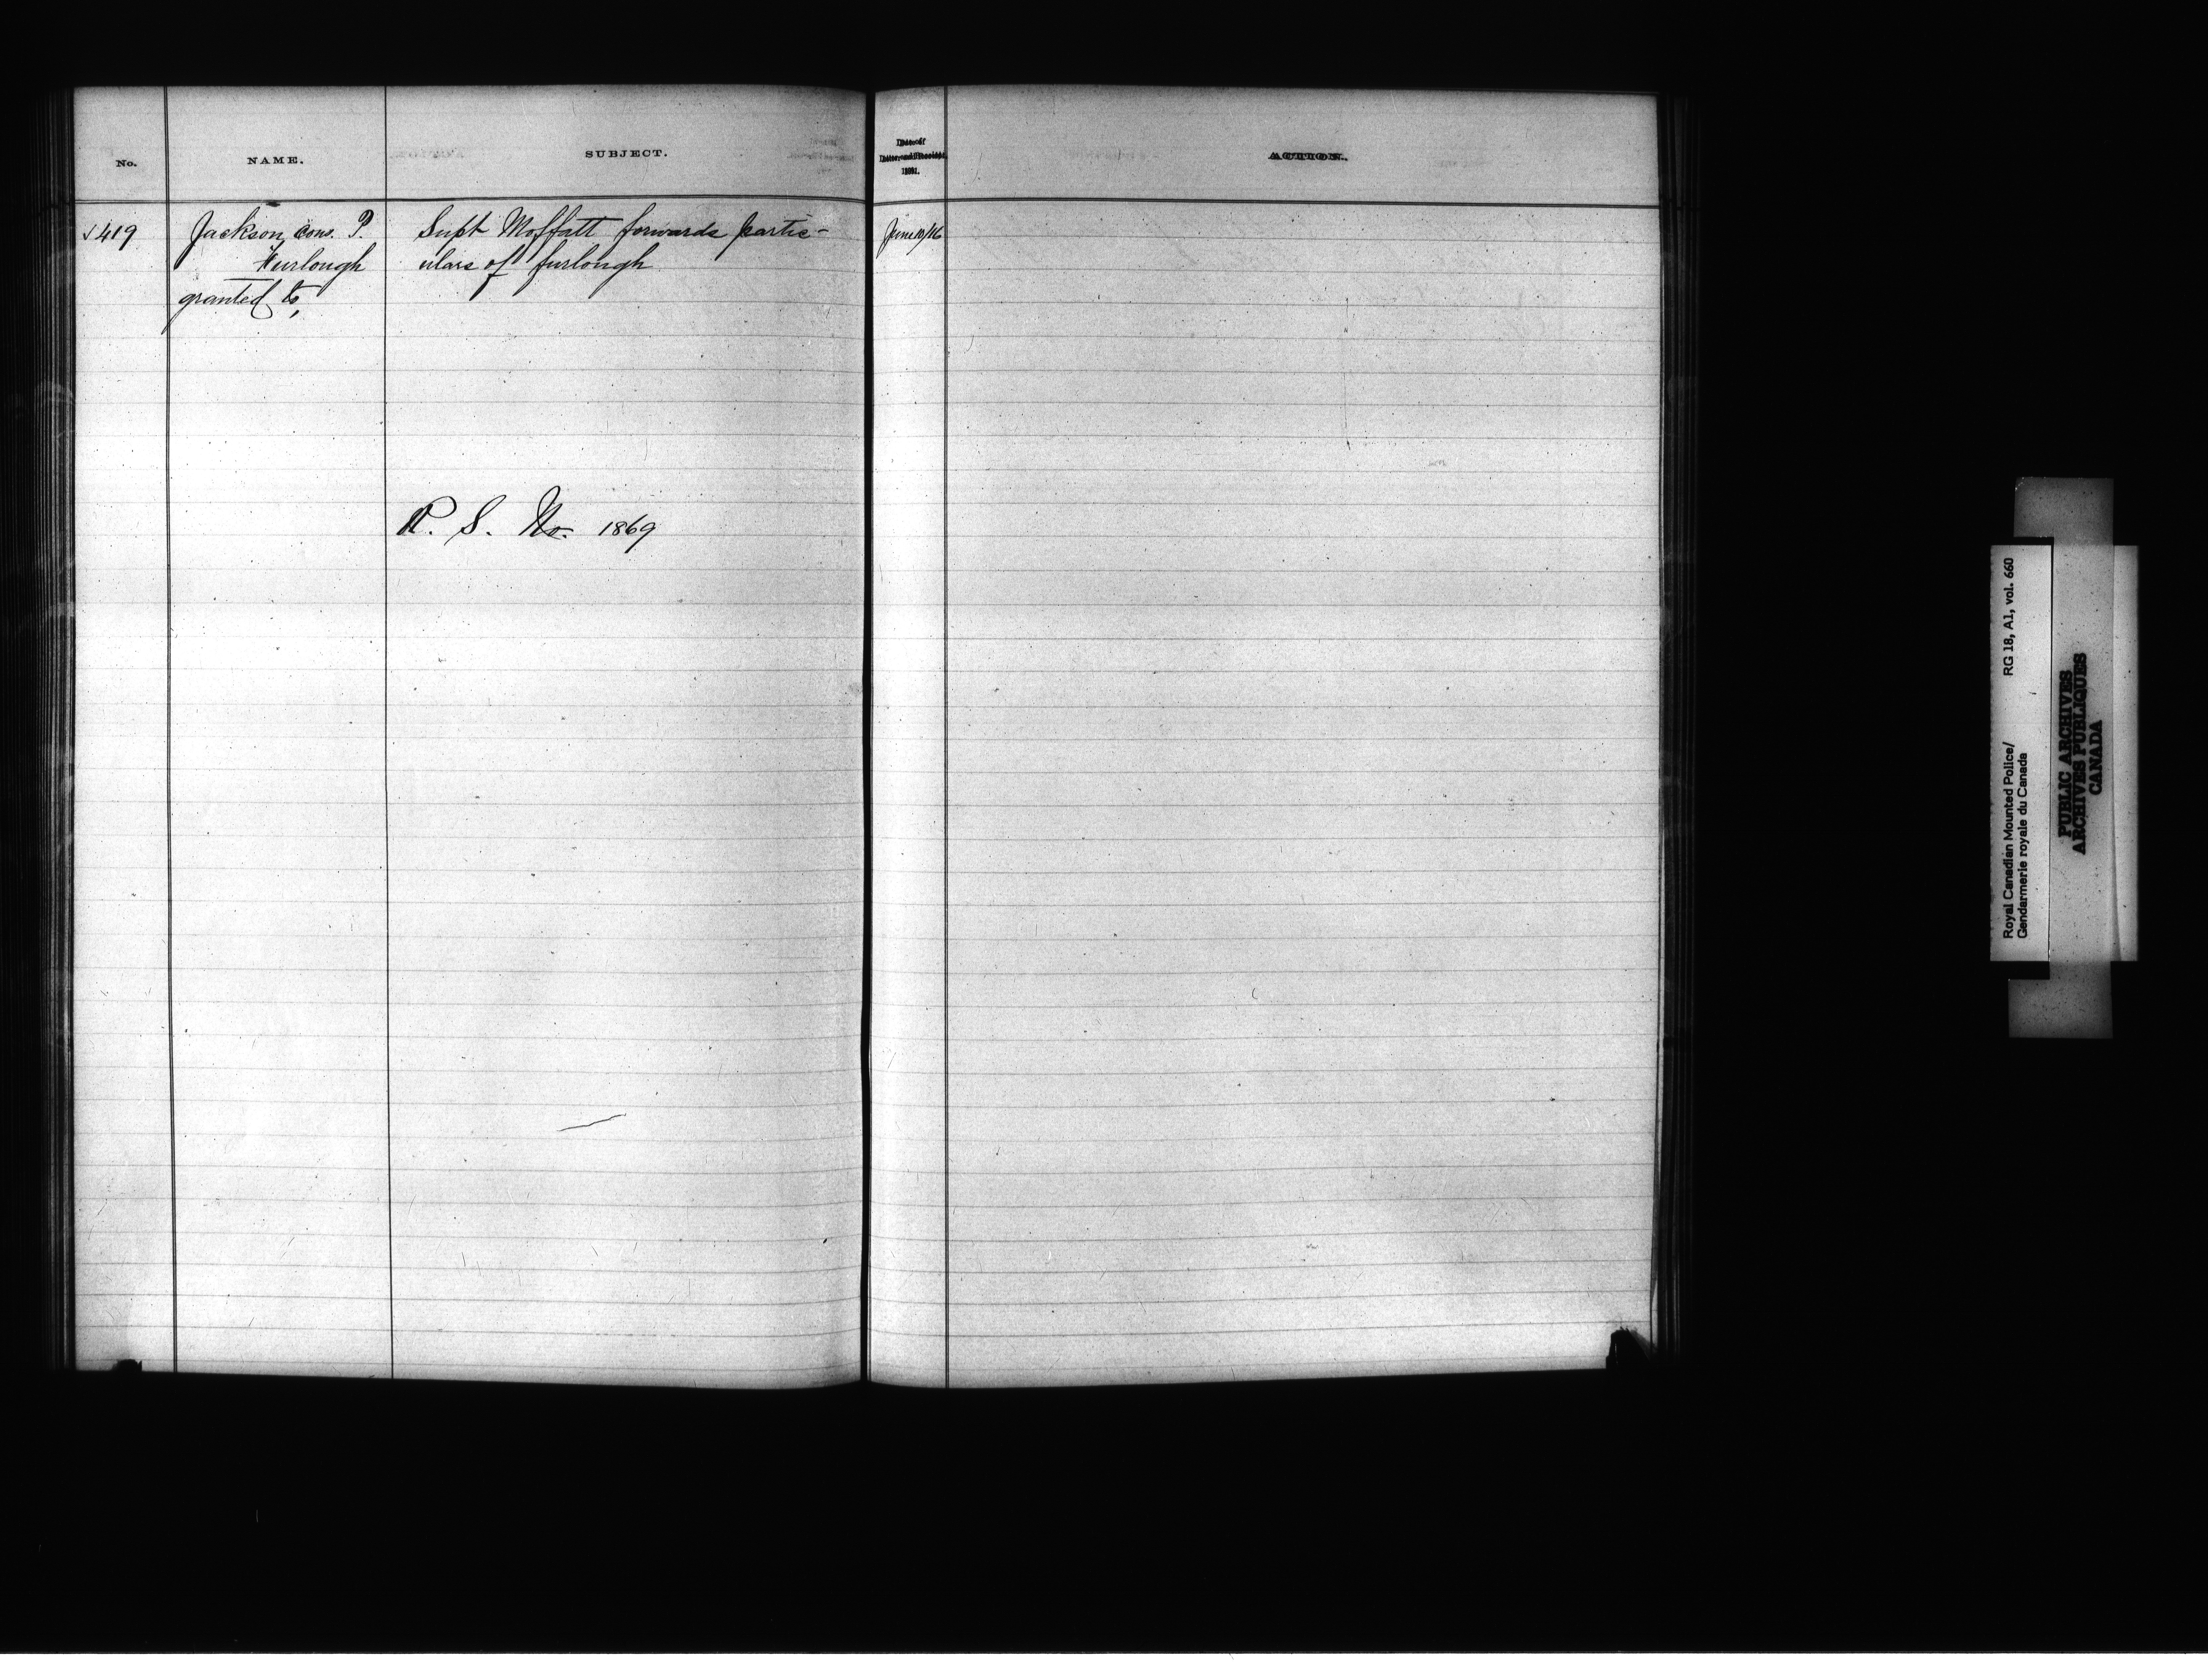 No.
NAME.
SUBJECT.
Date of
Letter and Receipt.
1891.
ACTION.
√419
Jackson, Cons. P.
Furlough
granted to,
Supt Moffatt forwards partic-
ulars of furlough
June 10/16
R. S. No. 1869
Royal Canadian Mounted Police/ RG 18, A1, vol. 660
Gendarmerie royale du Canada
PUBLIC ARCHIVES
ARCHIVES PUBLIQUES
CANADA